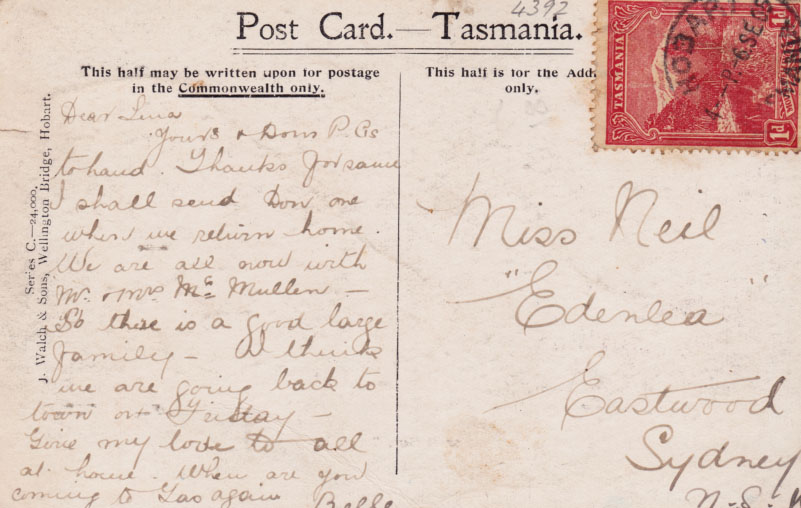 4392
Post Card.—Tasmania.
This half may be written upon for postage
in the Commonwealth only.
This half is for the Add
only.
TASMANIA
1d
1d
HOBAR
6 SE 0
Series C.—24,000.
J. Walch & Sons, Wellington Bridge, Hobart.
Dear Lina
Yours & Dons P.Cs
to hand. Thanks for same
I shall send Don one
when we return home.
We are all now with
Mr. & Mrs McMullen —
So there is a good large
family — I think
we are going back to
town on Friday —
Give my love to all
at home. When are you
coming to Tas again
Belle
Miss Neil
"Edenlea"
Eastwood
Sydney
N.S.W